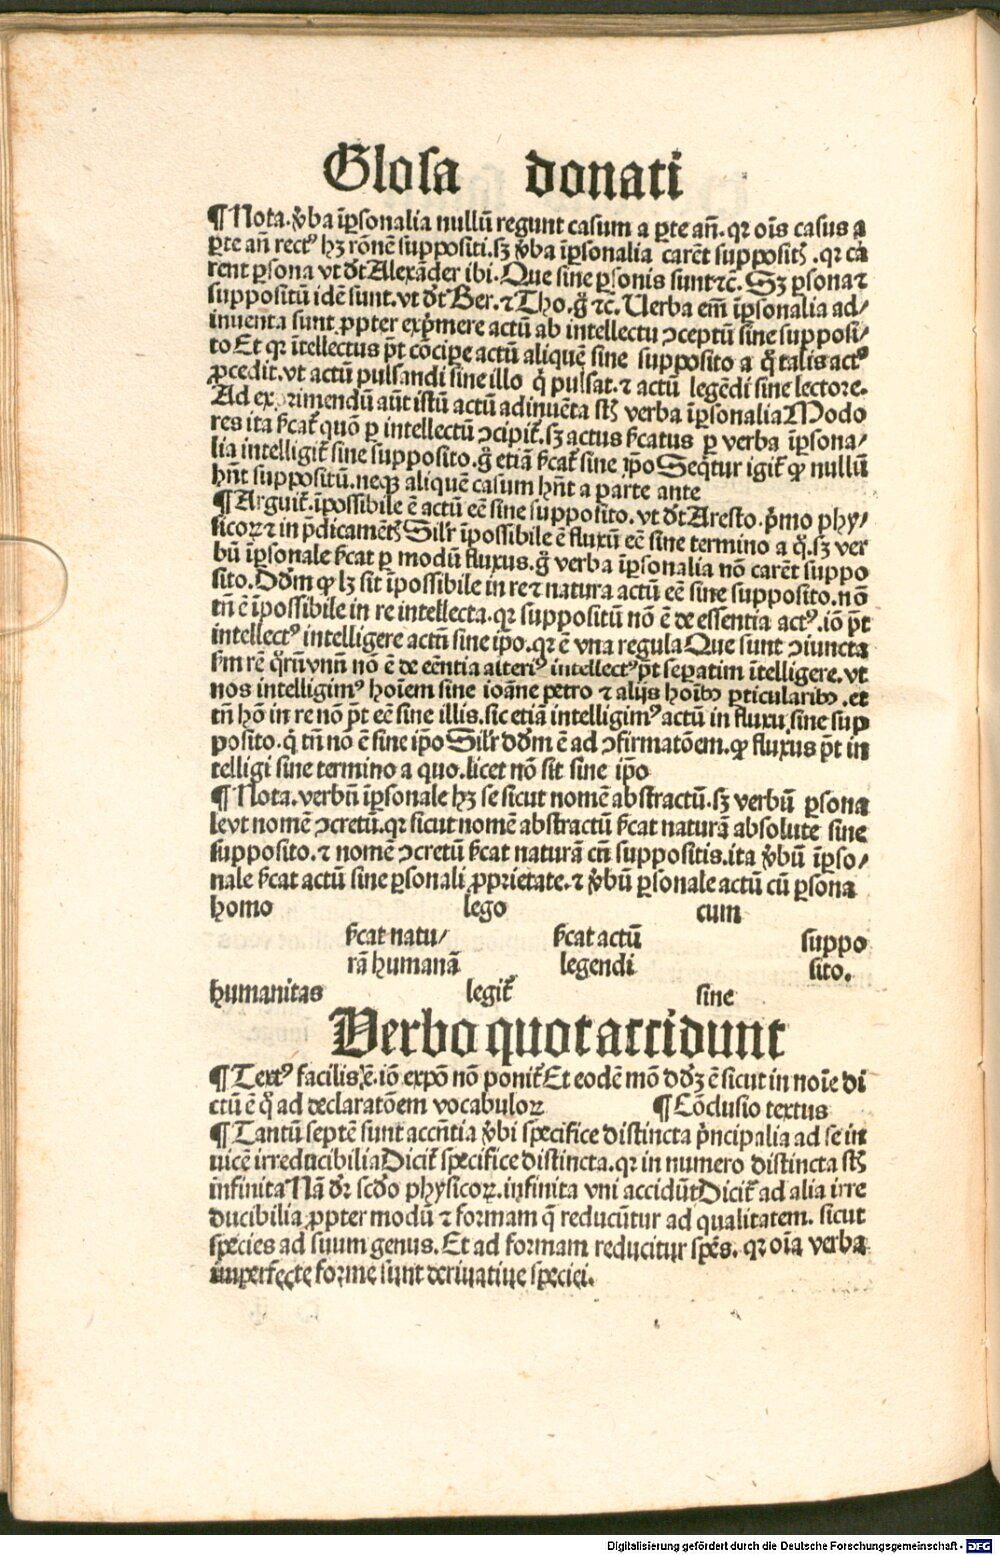 Glosa donati
¶ Nota. v̾ba īpſonalia nullū regunt caſum a ꝑte añ. qꝛ oīs caſus a
ꝑte añ rectꝰ hꝫ rōnē ſuppoſiti. ſꝫ v̾ba īꝑſonalia carēt ſuppoſitꝭ. qꝛ ca
rent ꝑſona vt dt̄ Alexāder ibi. Que ſine ꝑſonis ſunt ꝛc̄. Sꝫ ꝑſona ⁊
ſuppoſitū idē ſunt. vt dt̄ Ber. ⁊ Tho. g̊ ⁊c̄. Uerba em̄ īꝑſonalia ad⸗
inuenta ſunt ꝓpter exp̄mere actū ab intellectu ↄceptū ſine ſuppoſi⸗
to Et qꝛ ītellectus pt̄ cōcipe actū aliquē ſine ſuppoſito a q̊ talis actꝰ
ꝓcedit. vt actū pulſandi ſine illo q̇ pulſat. ⁊ actū legēdi ſine lectore.
Ad exprimendū aūt iſtū actū adinuēta ſt̄ verba īꝑſonalia Modo
res ita ſ̄cat̄ quō ꝑ intellectū ↄcipit̄. ſꝫ actus ſ̄catus ꝑ verba īꝑſona⸗
lia intelligit̄ ſine ſuppoſito. g̊ etiā ſ̄cat̄ ſine ip̄o Seq̄tur igit̄ ꝙ nullū
hn̄t ſuppoſitū. neqꝫ aliquē caſum hn̄t a parte ante
¶ Arguit̄. īpoſſibile ē actū eē ſine ſuppoſito. vt dt̄ Areſto. p̄mo phy⸗
ſicoꝝ ⁊ in p̄dicamētꝭ Sil̄r īpoſſibile ē fluxū eē ſine termino a q̊. ſꝫ ver
bū īꝑſonale ſ̄cat ꝑ modū fluxus. g̊ verba īꝑſonalia nō carēt ſuppo
ſito. Dd̄m ꝙ lꝫ ſit īpoſſibile in re ⁊ natura actū eē ſine ſuppoſito. nō
tn̄ ē īpoſſibile in re intellecta. qꝛ ſuppoſitū nō ē de eſſentia actꝰ. iō pt̄
intellectꝰ intelligere actū ſine ip̄o. qꝛ ē vna regula Que ſunt ↄiuncta
ſm̄ rē q̊rū vnū nō ē de eēntia alteriꝰ intellectꝰ pt̄ ſepatim ītelligere. vt
nos intelligimꝰ hoīem ſine ioāne petro ⁊ alijs hoībꝰ ꝑticularibꝰ. et
tn̄ hō in re nō pt̄ eē ſine illis. ſic etiā intelligimꝰ actū in fluxu ſine ſup
poſito. q̇ tn̄ nō ē ſine ip̄o Sil̄r dd̄m ē ad ↄfirmatōem. ꝙ fluxus pt̄ in
telligi ſine termino a quo. licet nō ſit ſine ip̄o
¶ Nota. verbū īꝑſonale hꝫ ſe ſicut nomē abſtractū. ſꝫ verbū ꝑſona
le vt nomē ↄcretū. qꝛ ſicut nomē abſtractū ſ̄cat naturā abſolute ſine
ſuppoſito. ⁊ nomē ↄcretū ſ̄cat naturā cū ſuppoſitis. ita v̾bū īꝑſo⸗
nale ſ̄cat actū ſine ꝑſonali ꝓprietate. ⁊ v̾bū ꝑſonale actū cū ꝑſona
homo lego cum
ſ̄cat natu⸗ ſ̄cat actū ſuppo
rā humanā legendi ſito.
humanitas legit̄ ſine
Verbo quot accidunt
¶ Textꝰ facilis ē. iō expō nō ponit̄ Et eodē mō dd̄ꝫ ē ſicut in noīe di
ctū ē q̊ ad declaratōem vocabuloꝝ ¶ Cōcluſio textus
¶ Tantū ſeptē ſunt accn̄tia v̾bi ſpecifice diſtincta p̄ncipalia ad ſe in
uicē irreducibilia Dicit̄ ſpecifice diſtincta. qꝛ in numero diſtincta ſt̄
infinita Nā dr̄ ſcd̄o phyſicoꝝ. infinita vni accidūt Dicit̄ ad alia irre
ducibilia ꝓpter modū ⁊ formam q̄ reducūtur ad qualitatem. ſicut
ſpecies ad ſuum genus. Et ad formam reducitur ſpēs. qꝛ oīa verba
imperfecte forme ſunt deriuatiue ſpeciei.
Digitalisierung gefördert durch die Deutsche Forschungsgemeinschaft - DFG